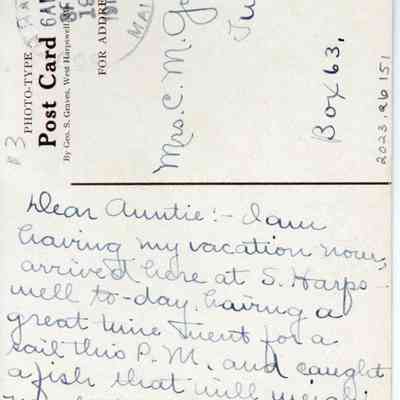 PHOTO-TYPE
Post Card
By Geo. S. Graves, West Harpswell
FOR ADDRE
6 AM
MAI
Mrs. C. M.
Box 63,
2023.26.151
Dear Auntie:- I am
having my vacation now,
arrived here at S. Harps-
well to-day, having a
great time. Went for a
sail this P. M. and caught
a fish that will weigh